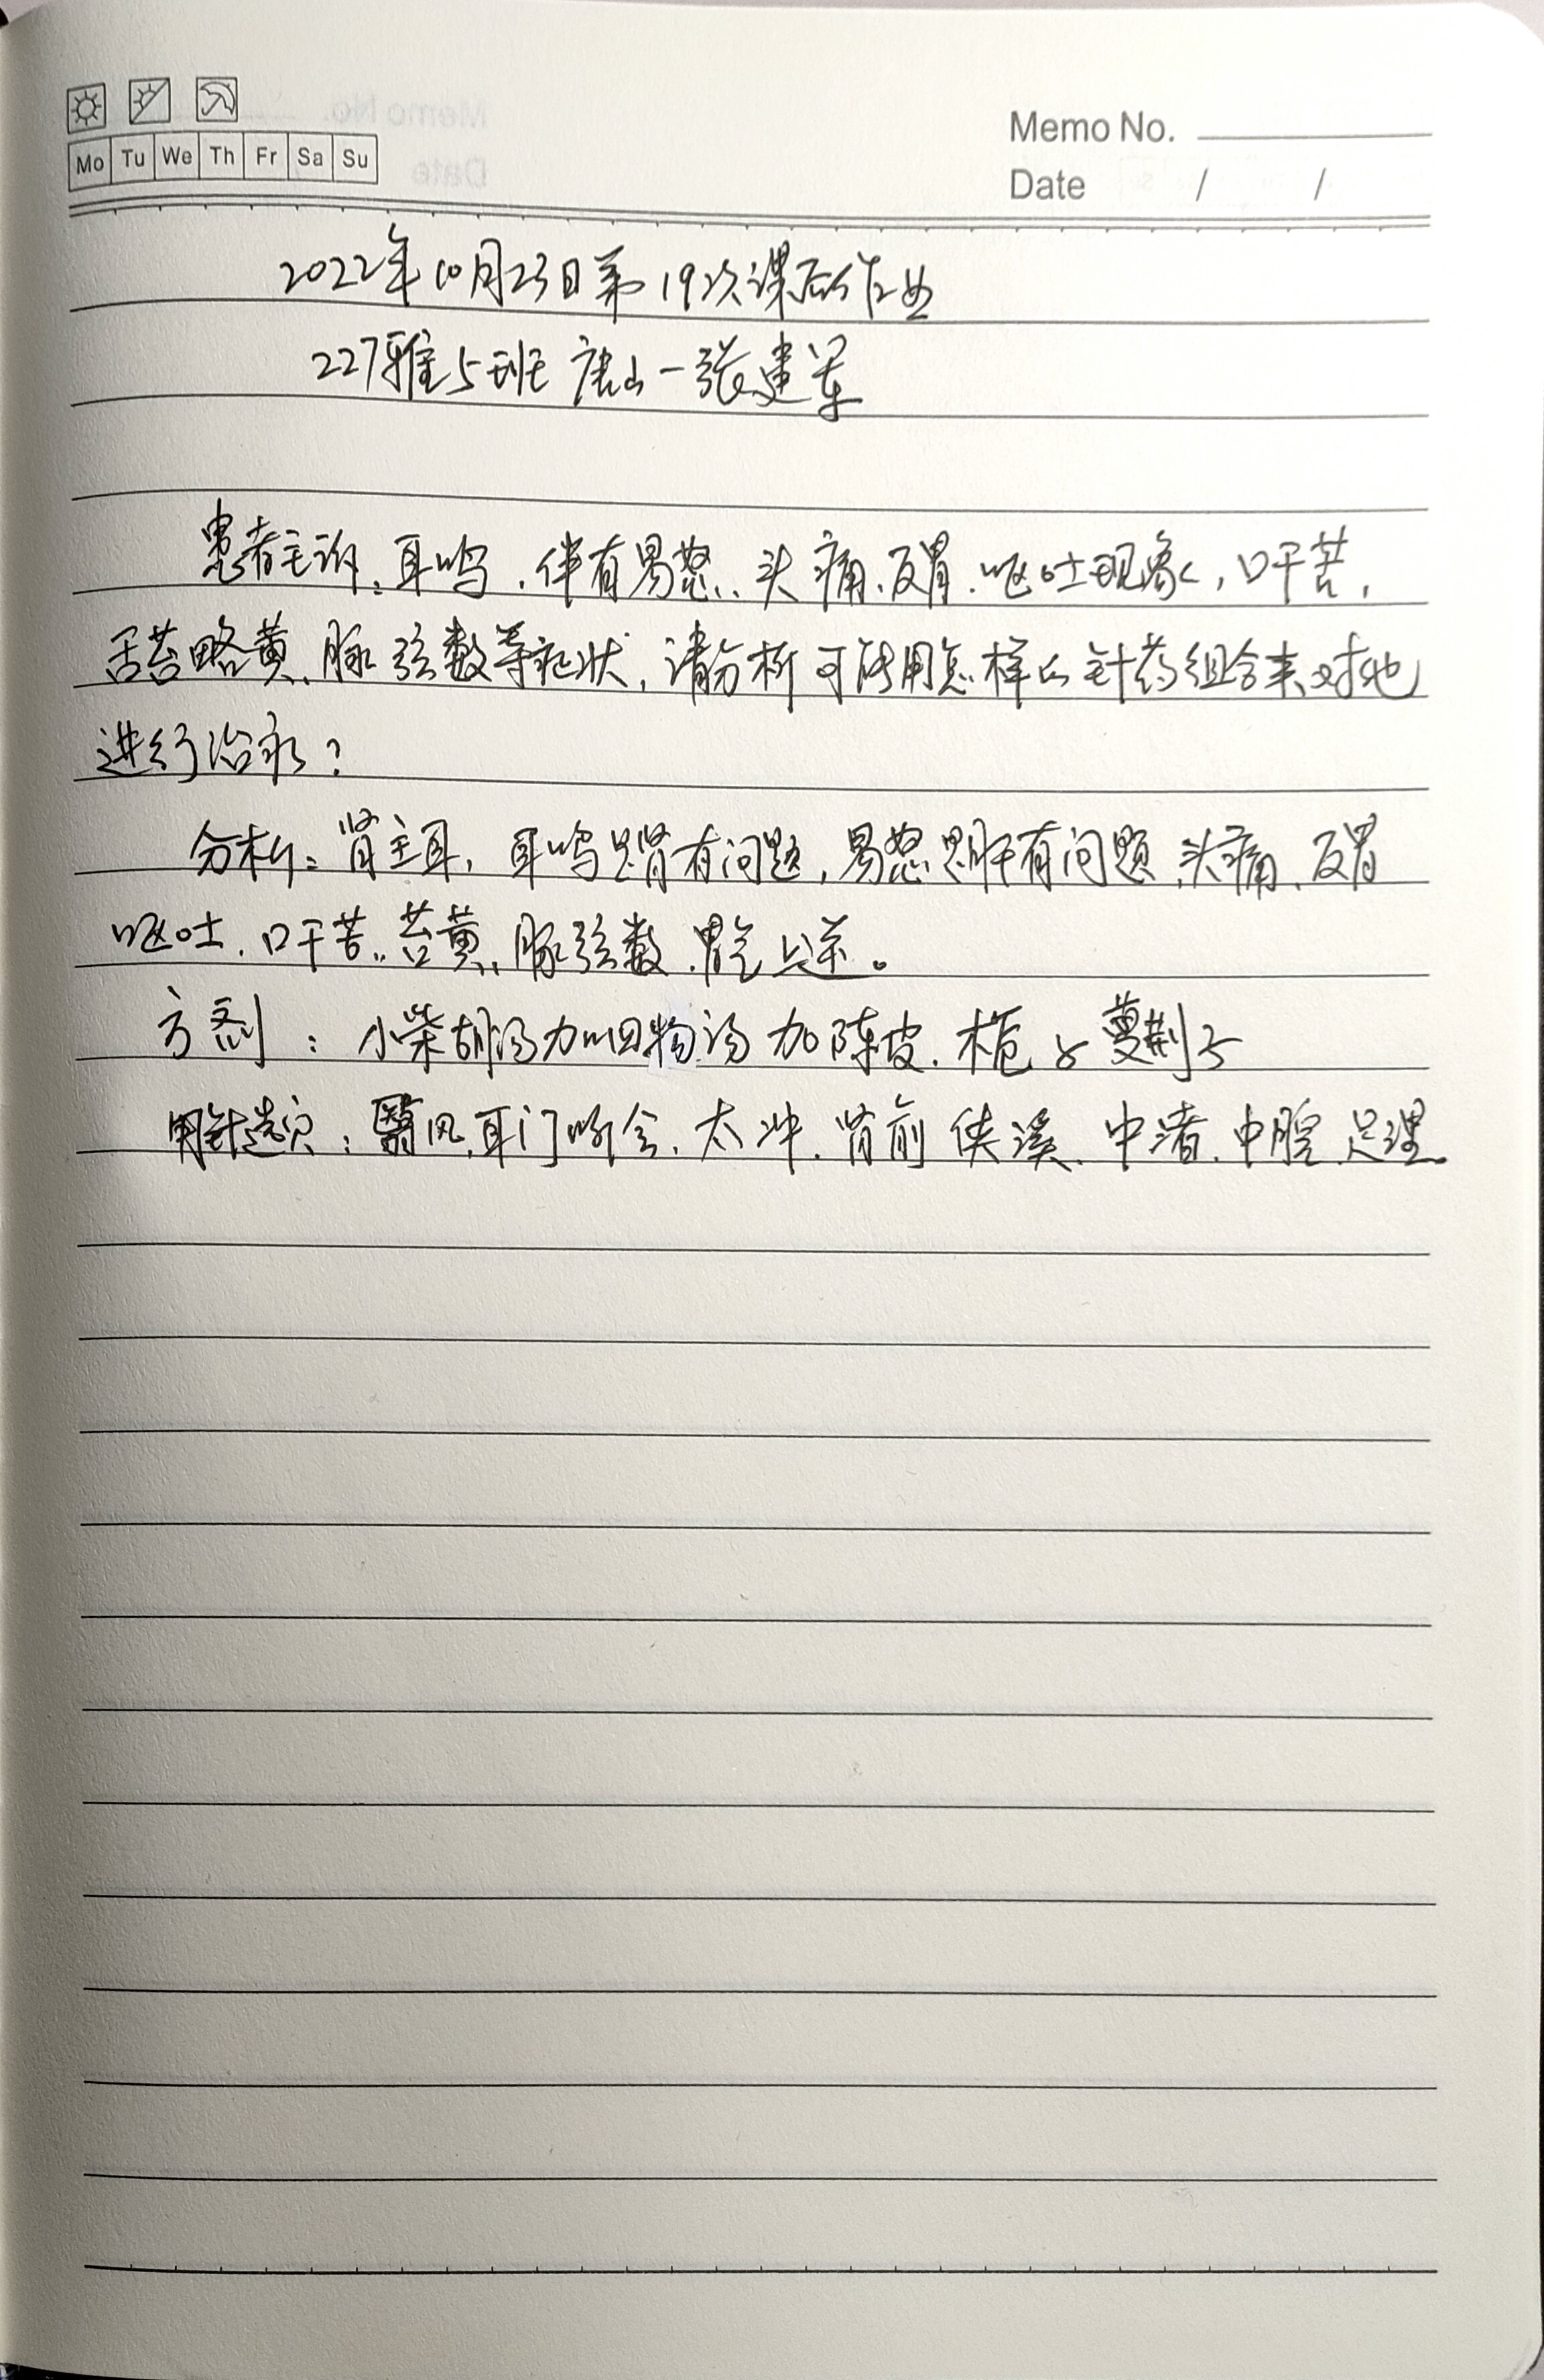 Mo Tu We Th Fr Sa Su
Memo No.
Date / /
2022年10月23日第19次课后作业
227雅5班 唐山-张建军
患者主诉:耳鸣,伴有易怒、头痛、反胃、呕吐现象,口干苦,
舌苔略黄、脉弦数等症状,请分析可以用怎样的针药组合来对他
进行治疗?
分析:肾主耳,耳鸣是肾有问题,易怒是肝有问题,头痛、反胃
呕吐、口干苦、苔黄、脉弦数、胃气上逆。
方剂:小柴胡汤加四物汤加陈皮、栀子蔓荆子
用针选穴:翳风、耳门、听会、太冲、肾前 侠溪、中渚、中脘、足理。